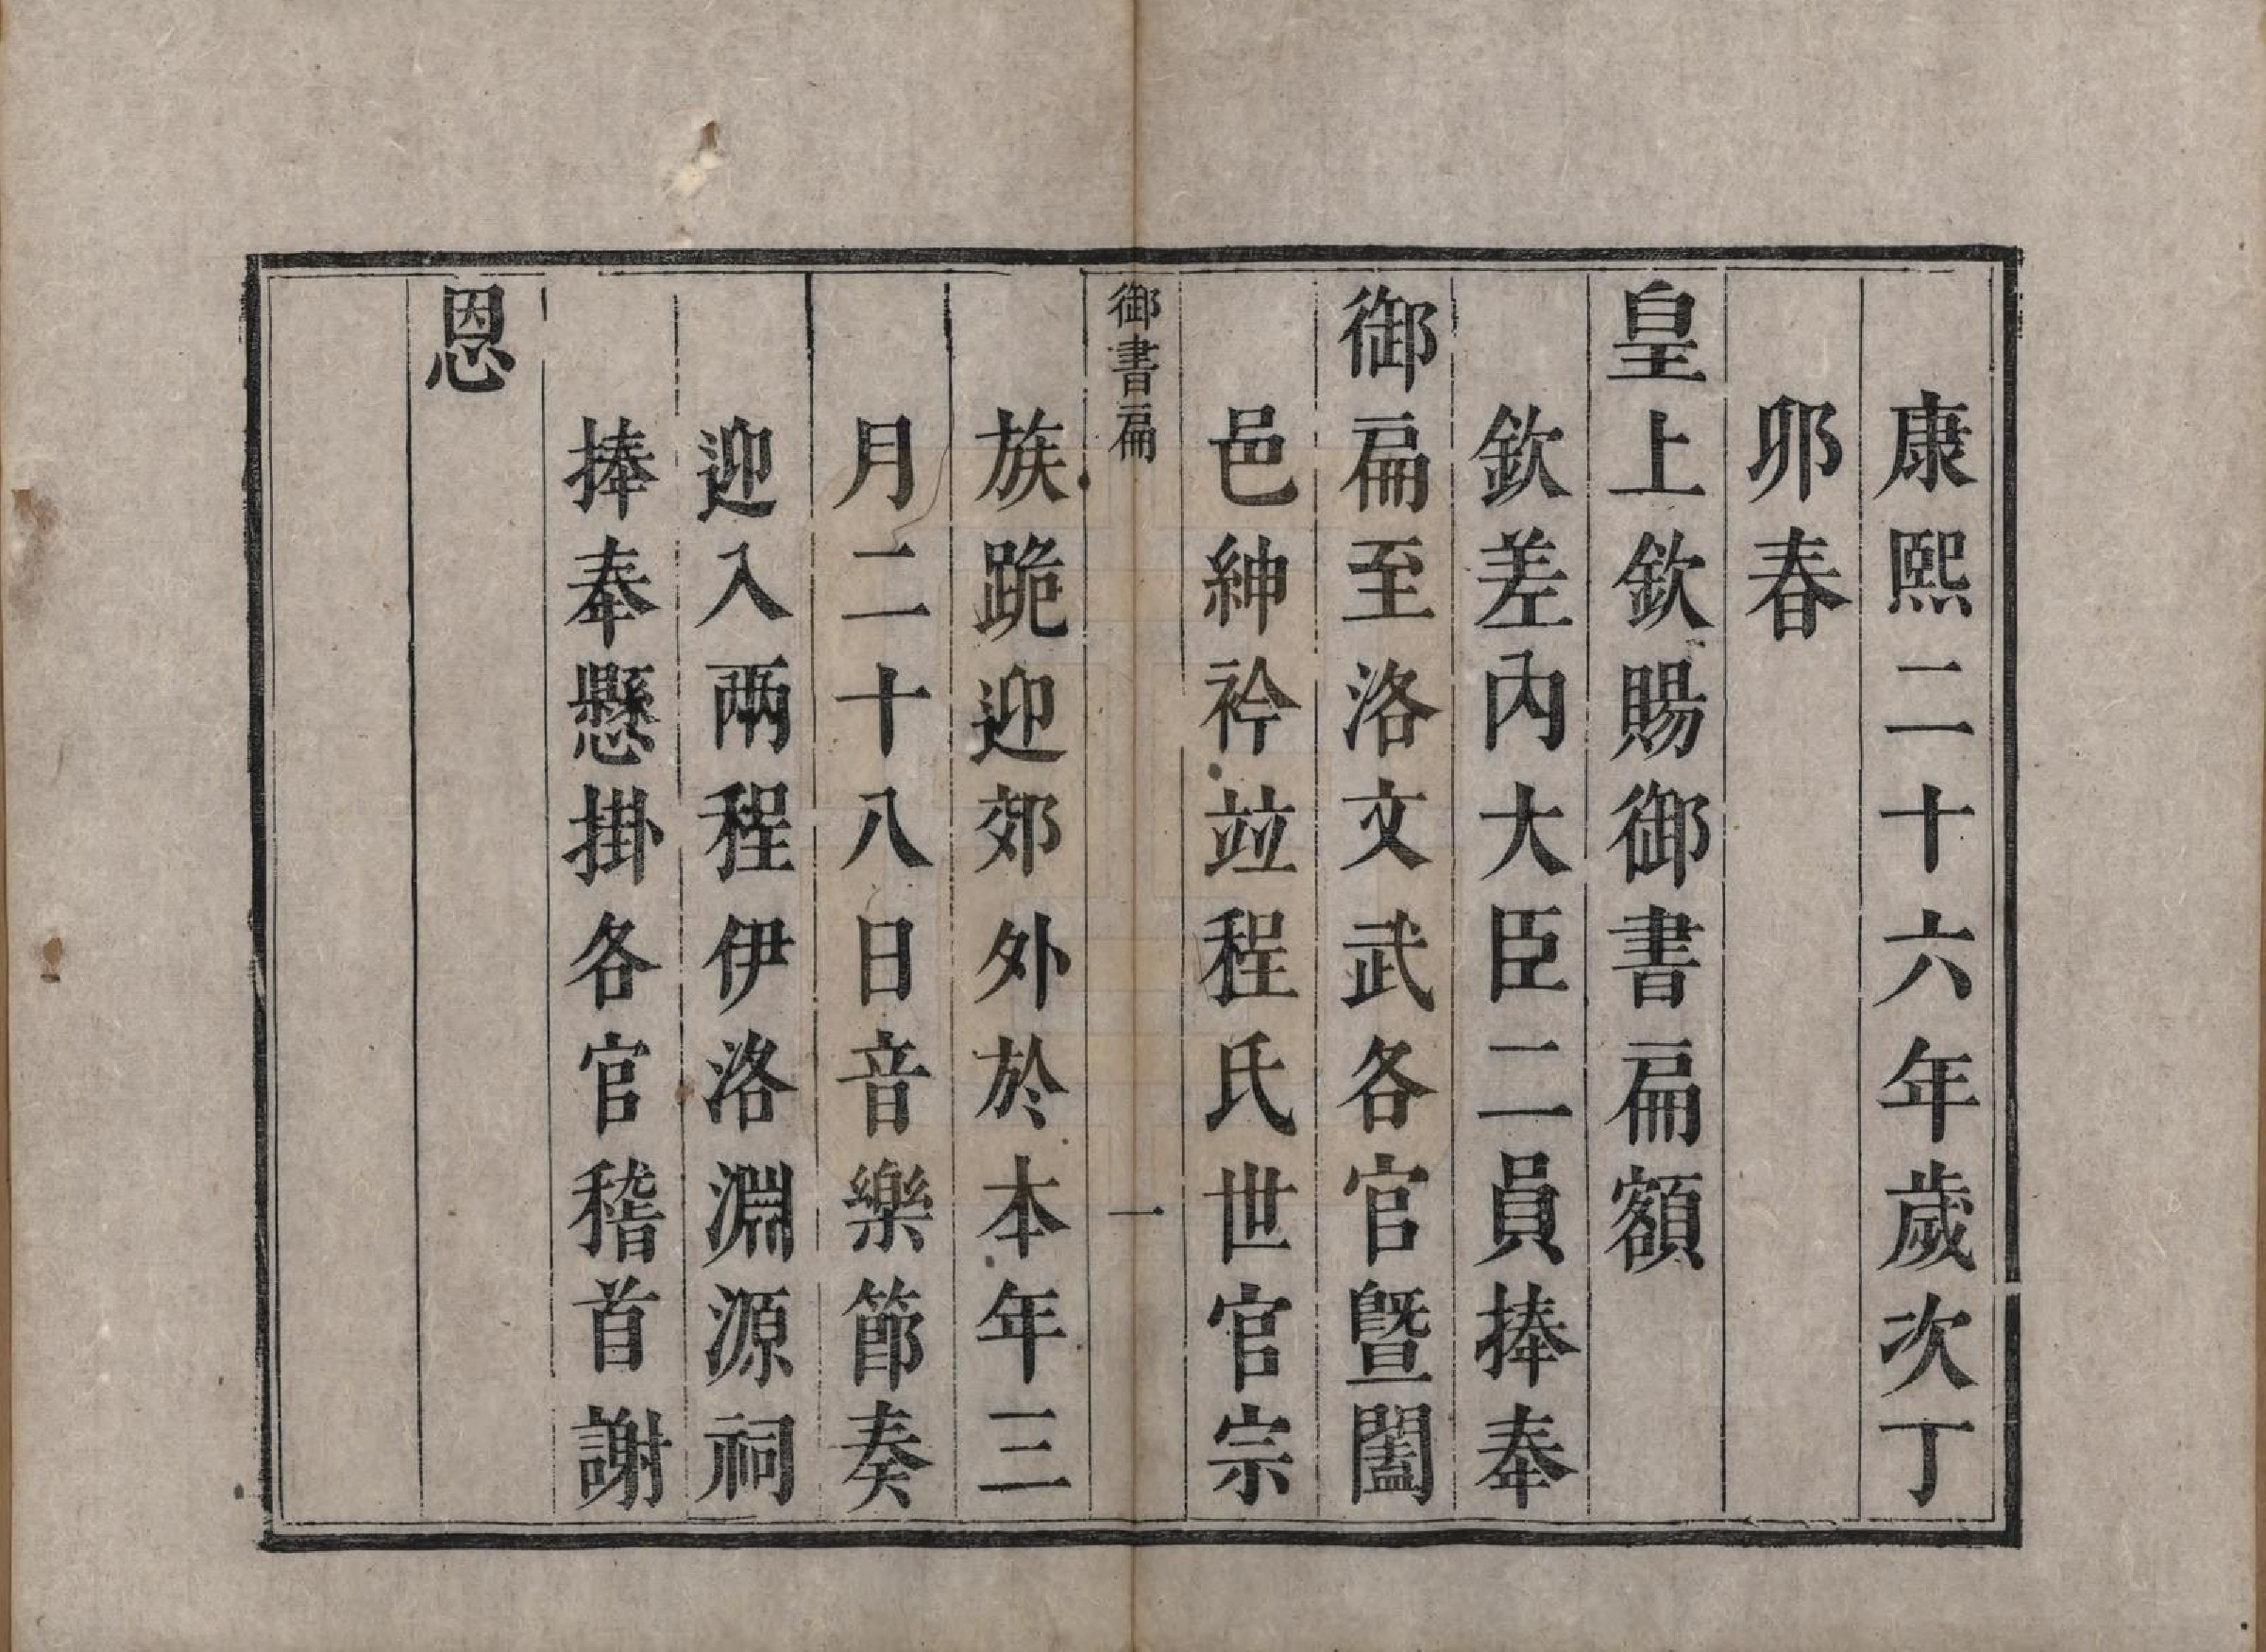 康熙二十六年歲次丁
卯春
皇上欽賜御書扁額
欽差內大臣二員捧奉
御扁至洛文武各官曁闔
邑紳衿竝程氏世官宗
御書扁
一
族跪迎郊外於本年三
月二十八日音樂節奏
迎入兩程伊洛淵源祠
捧奉懸掛各官稽首謝
恩